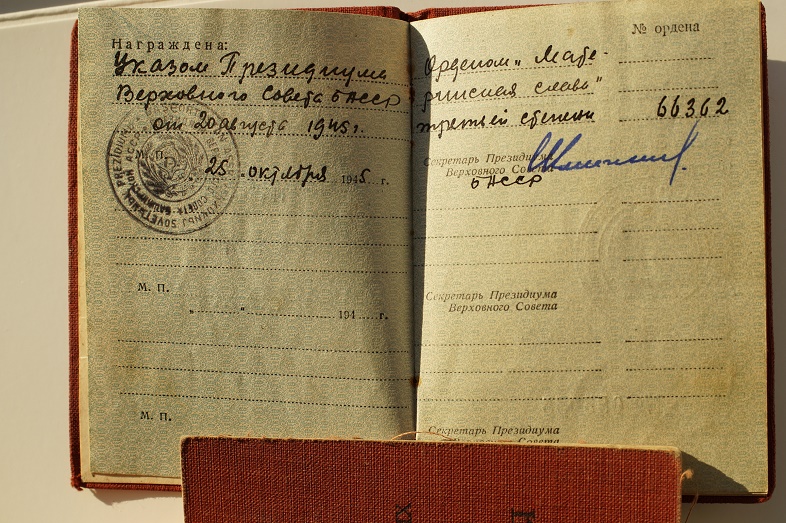 Награждена:
Указом Президиума
Верховного Совета БАССР
от 20 августа 1945г.
М. П.
„ 25 „ октября 1945 г.
М. П.
„ “ 194 г.
М. П.
№ ордена
Орденом „Мате-
ринская слава"
третьей степени 66362
Секретарь Президиума
Верховного Совета
БАССР
Секретарь Президиума
Верховного Совета
Секретарь Президиума